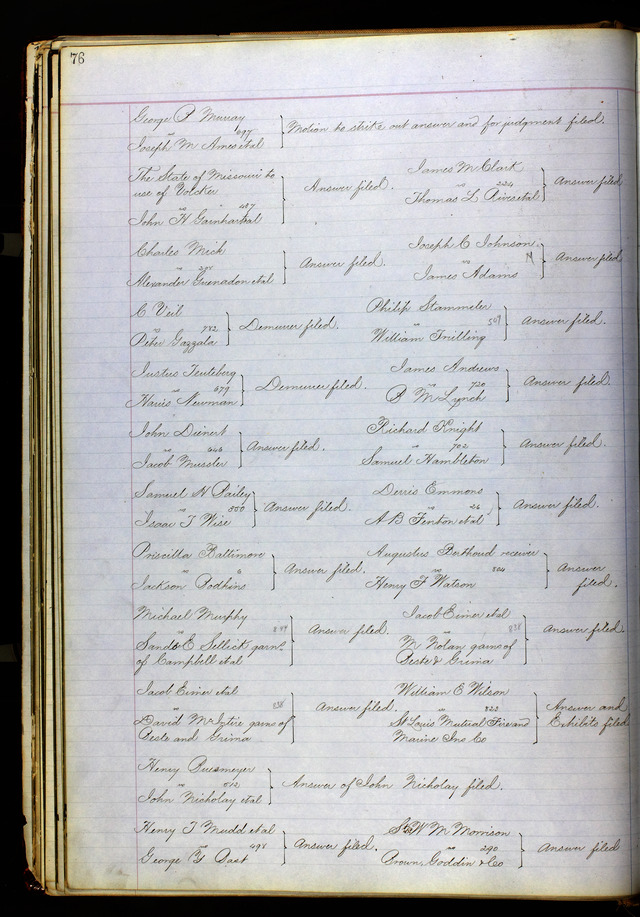 76
George P Murray
vs 697
Joseph M Ames et al
Motion to strike out answer and for judgment filed.
The State of Missouri to
use of Yocker
vs 487
John H Gainhart al
Answer filed.
James M Clark
vs 224
Thomas L Rives et al
Answer filed
Charles Mick
vs
Alexander Grenadon et al
Answer filed.
Joseph C Johnson.
vs
James Adams
Answer filed
C Veil
vs 782
Peter Gazzala
Demurrer filed.
Philip Stammeler
vs 509
William Trilling
Answer filed.
Justus Teuteberg
vs 679
Harris Newman
Demurrer filed.
James Andrews
vs 720
P McLynch
Answer filed.
John Deinert
vs 646
Jacob Mussler
Answer filed.
Richard Knight
vs 702
Samuel Hambleton
Answer filed.
Samuel N Pailey
vs 300
Isaac T Wise
Answer filed.
Derris Emmons
vs 26
A B Fenton et al
Answer filed.
Priscilla Baltimore
vs 6
Jackson Podkins
Answer filed.
Augustus Berthoud receiver
vs 504
Henry F Watson
Answer
filed.
Michael Murphy
vs
Sands E Sellick garn.
of Campbell et al
Answer filed.
Jacob Eimer et al
vs 838
M Nolan garns of
Peste & Grima
Answer filed.
Jacob Eimer et al
vs 838
David McIntire garns of
Peste and Grima
Answer filed.
William E Wilson
vs 823
St Louis Mutual Fire and
Marine Ins Co
Answer and
Exhibits filed
Henry BuSmeyer
vs 612
John Nicholay et al
Answer of John Nicholay filed.
Henry T Mudd et al
vs 498
George Y Past
Answer filed.
W M Morrison
vs 290
Brown, Goddin & Co
Answer filed